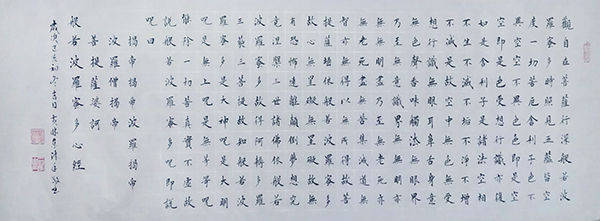 觀自在菩薩行深般若波
羅蜜多時照見五蘊皆空
度一切苦厄舍利子色不
異空空不異色色即是空
空即是色受想行識亦復
如是舍利子是諸法空相
不生不滅不垢不淨不增
不減是故空中無色無受
想行識無眼耳鼻舌身意
無色聲香味觸法無眼界
乃至無意識界無無明亦
無無明盡乃至無老死亦
無老死盡無苦集滅道無
智亦無得以無所得故菩
提薩埵依般若波羅蜜多
故心無罣礙無罣礙故無
有恐怖遠離顛倒夢想究
竟涅槃三世諸佛依般若
波羅蜜多故得阿耨多羅
三藐三菩提故知般若波
羅蜜多是大神咒是大明
咒是無上咒是無等等咒
能除一切苦真實不虛故
說般若波羅蜜多咒即說
咒曰
揭帝揭帝波羅揭帝
波羅僧揭帝
菩提薩婆訶
般若波羅蜜多心經